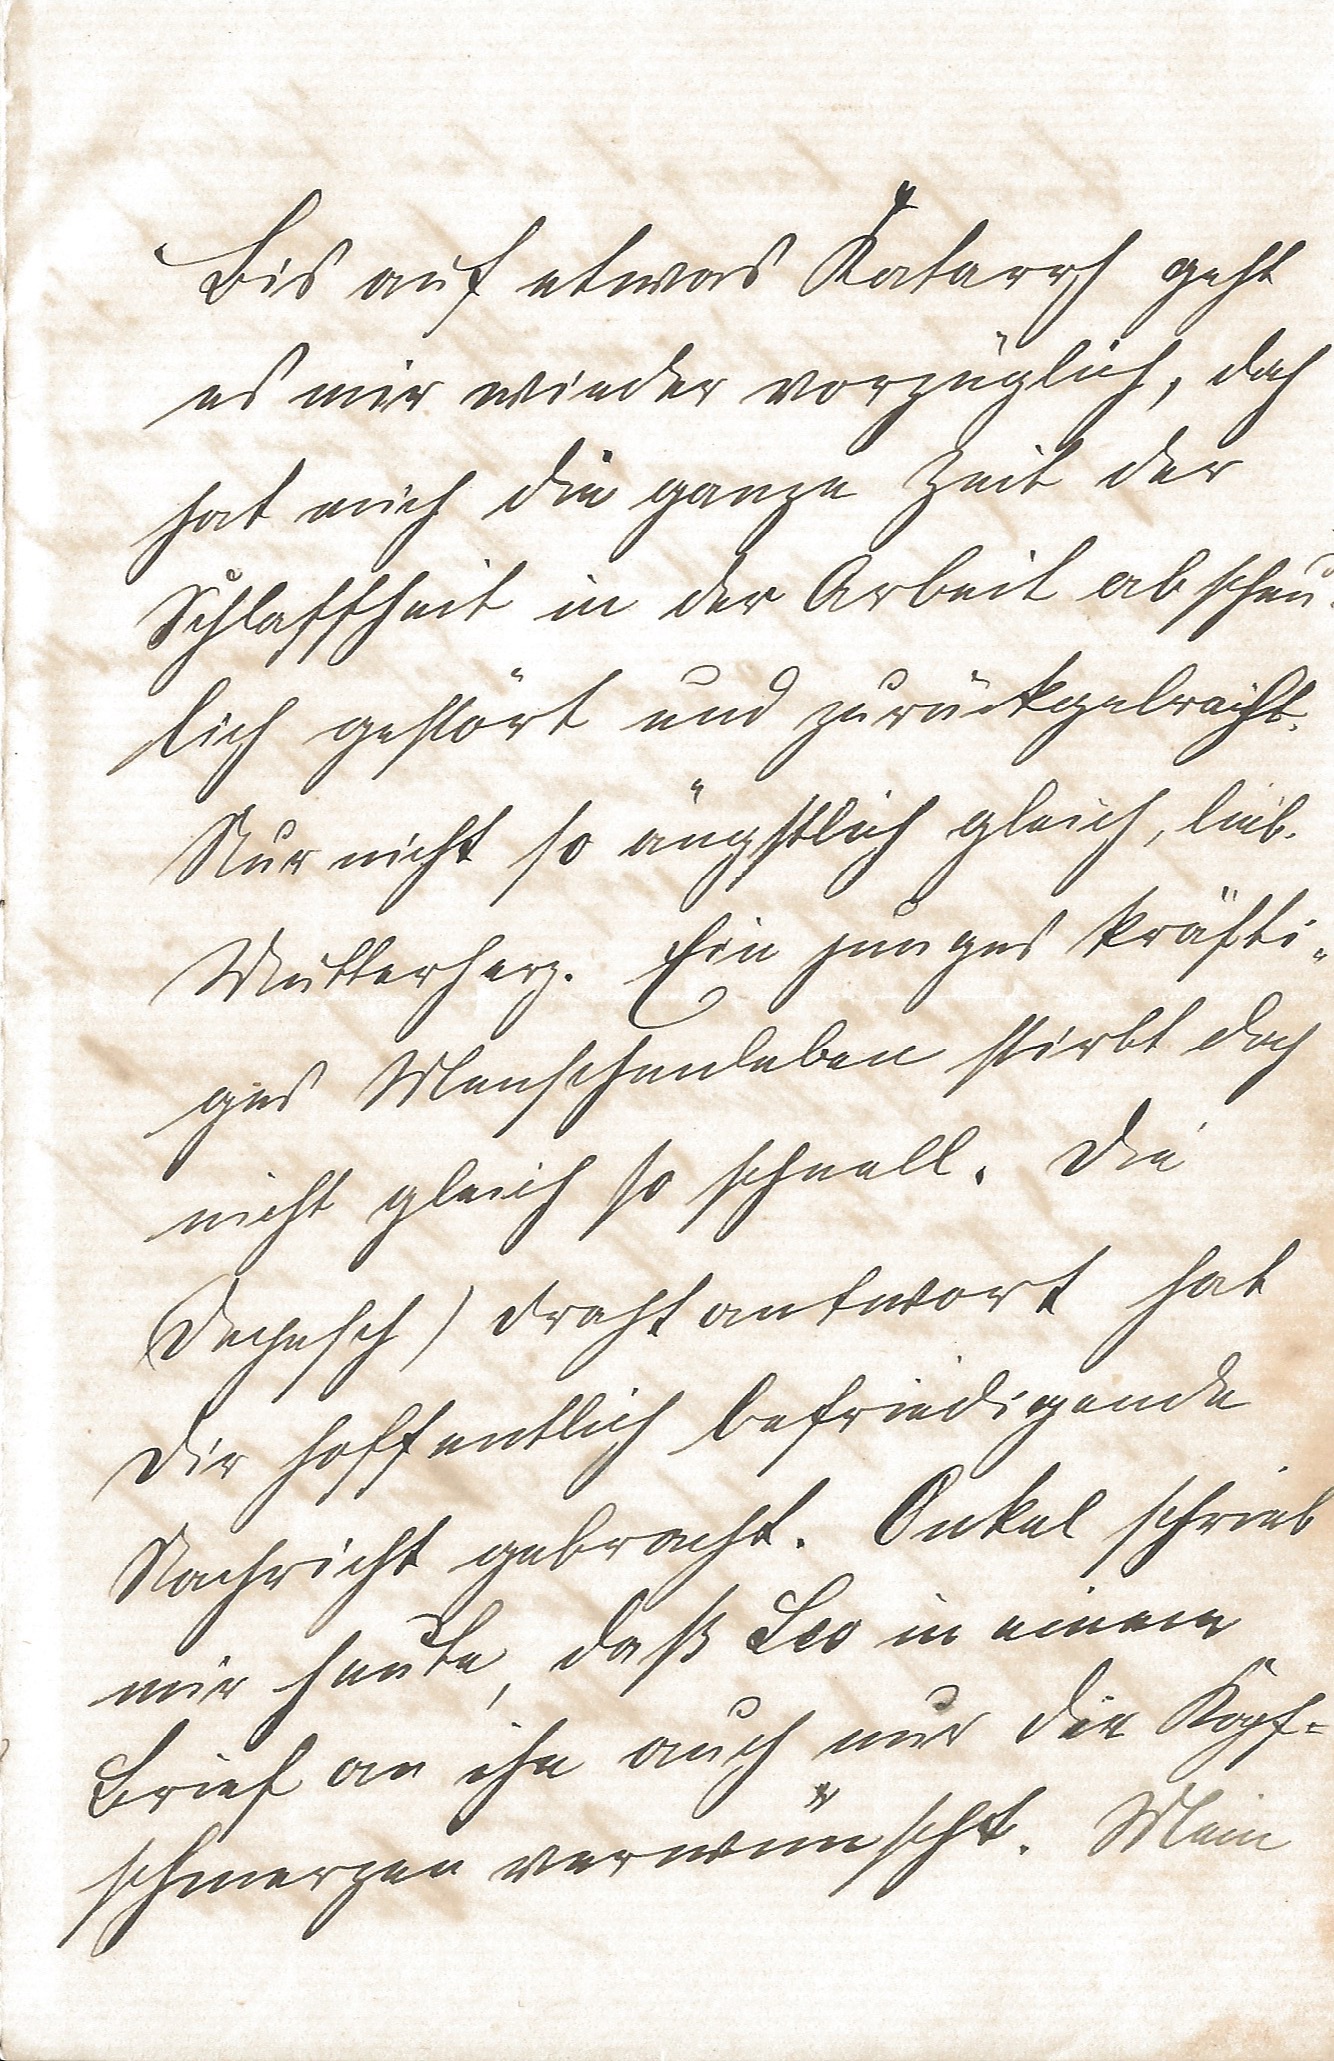 Bis auf etwas Katarrh geht
es mir wieder vorzüglich, doch
hat mich die ganze Zeit der
Schlaffheit in der Arbeit abscheu-
lich gestört und zurückgebracht.
Nur nicht so ängstlich gleich, lieb.
Mutterherz. Ein junges kräfti-
ges Menschenleben stirbt doch
nicht gleich so schnell. Die
(Depesch) Drahtantwort hat
Dir hoffentlich befriedigende
Nachricht gebracht. Onkel schrieb
mir heute, daß Leo in einem
Brief an ihn auch nur die Kopf=
schmerzen verwünscht. Mein